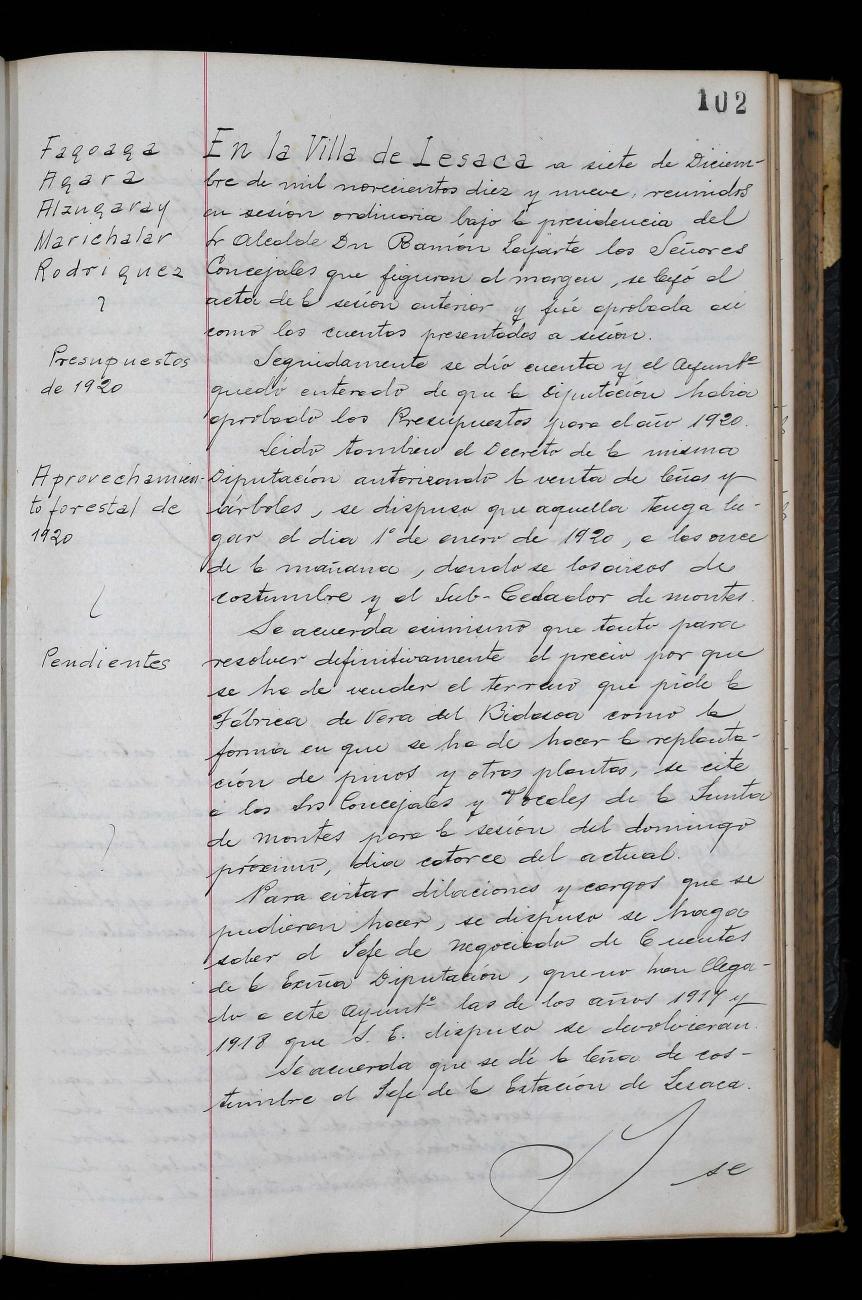 102
Fagoaga
Agara
Alzugaray
Marichalar
Rodriguez
En la Villa de Lesaca a siete de Diciem-
bre de mil novecientos diez y nueve, reunidos
en sesión ordinaria bajo la presidencia del
Sr Alcalde Dn Ramón Lajarte los Señores
Concejales que figuran al margen, se leyó el
acta de la sesión anterior y fué aprobada así
como las cuentas presentadas a sesión.
Presupuestos
de 1920
Seguidamente se dió cuenta y el Ayuntº
quedó enterado de que la Diputación habia
aprobado los Presupuestos para el año 1920.
Aprovechamien-
to forestal de
1920
Leido tambien el Decreto de la misma
Diputación autorizando la venta de leñas y
árboles, se dispuso que aquella tenga lu-
gar el dia 1º de enero de 1920, a las once
de la mañana, dandose los avisos de
costumbre y al Sub-Celador de montes.
Pendientes
Se acuerda asimismo que tanto para
resolver definitivamente el precio por que
se ha de vender el terreno que pide la
Fábrica de Vera del Bidasoa como la
forma en que se ha de hacer la replanta-
ción de pinos y otras plantas, se cite
a los Srs Concejales y Vocales de la Junta
de montes para la sesión del domingo
próximo, dia catorce del actual.
Para evitar dilaciones y cargos que se
pudieran hacer, se dispuso se haga
saber al Jefe de Negociado de Cuentas
de la Exma Diputación, que no han llega-
do a este Ayuntº las de los años 1917 y
1918 que S. E. dispuso se devolvieran.
Se acuerda que se dé la leña de cos-
tumbre al Jefe de la Estación de Lesaca.
se